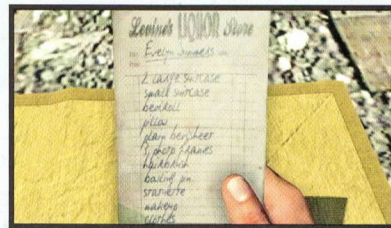 Levine's LIQUOR Store
Evelyn Summers
2 large suitcase
small suitcase
bedroll
pillow
plain bedsheet
3 photo frames
hairbrush
bowling pin
statuette
makeup
clothes